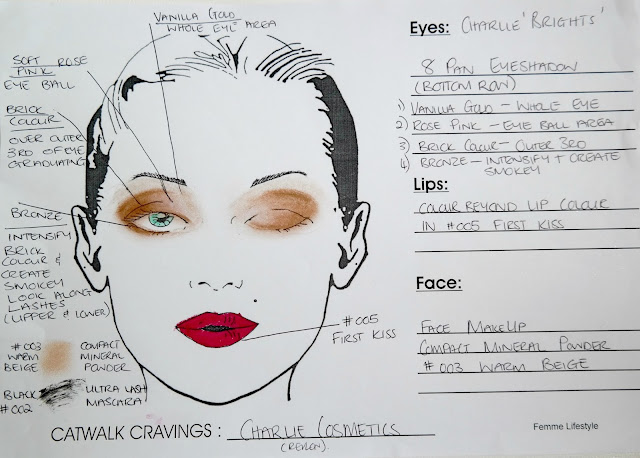 VANILLA GOLD
"WHOLE EYE" AREA
SOFT ROSE
PINK
EYE BALL
BRICK
COLOUR
OVER OUTER
3RD OF EYE
GRADUATING
BRONZE
INTENSIFY
BRICK
COLOUR &
CREATE
SMOKEY
LOOK ALONG
LASHES
(UPPER & LOWER)
#003
WARM
BEIGE
COMPACT
MINERAL
POWDER
BLACK
#002
ULTRA LASH
MASCARA
#005
FIRST KISS
Eyes: CHARLIE 'BRIGHTS'
8 PAN EYESHADOW
(BOTTOM ROW)
1) VANILLA GOLD - WHOLE EYE
2) ROSE PINK - EYE BALL AREA
3) BRICK COLOUR - OUTER 3RD
4) BRONZE - INTENSIFY + CREATE
SMOKEY
Lips:
COLOUR BEYOND LIP COLOUR
IN #005 FIRST KISS
Face:
FACE MAKEUP
COMPACT MINERAL POWDER
#003 WARM BEIGE
CATWALK CRAVINGS : CHARLIE COSMETICS
(REVLON).
Femme Lifestyle